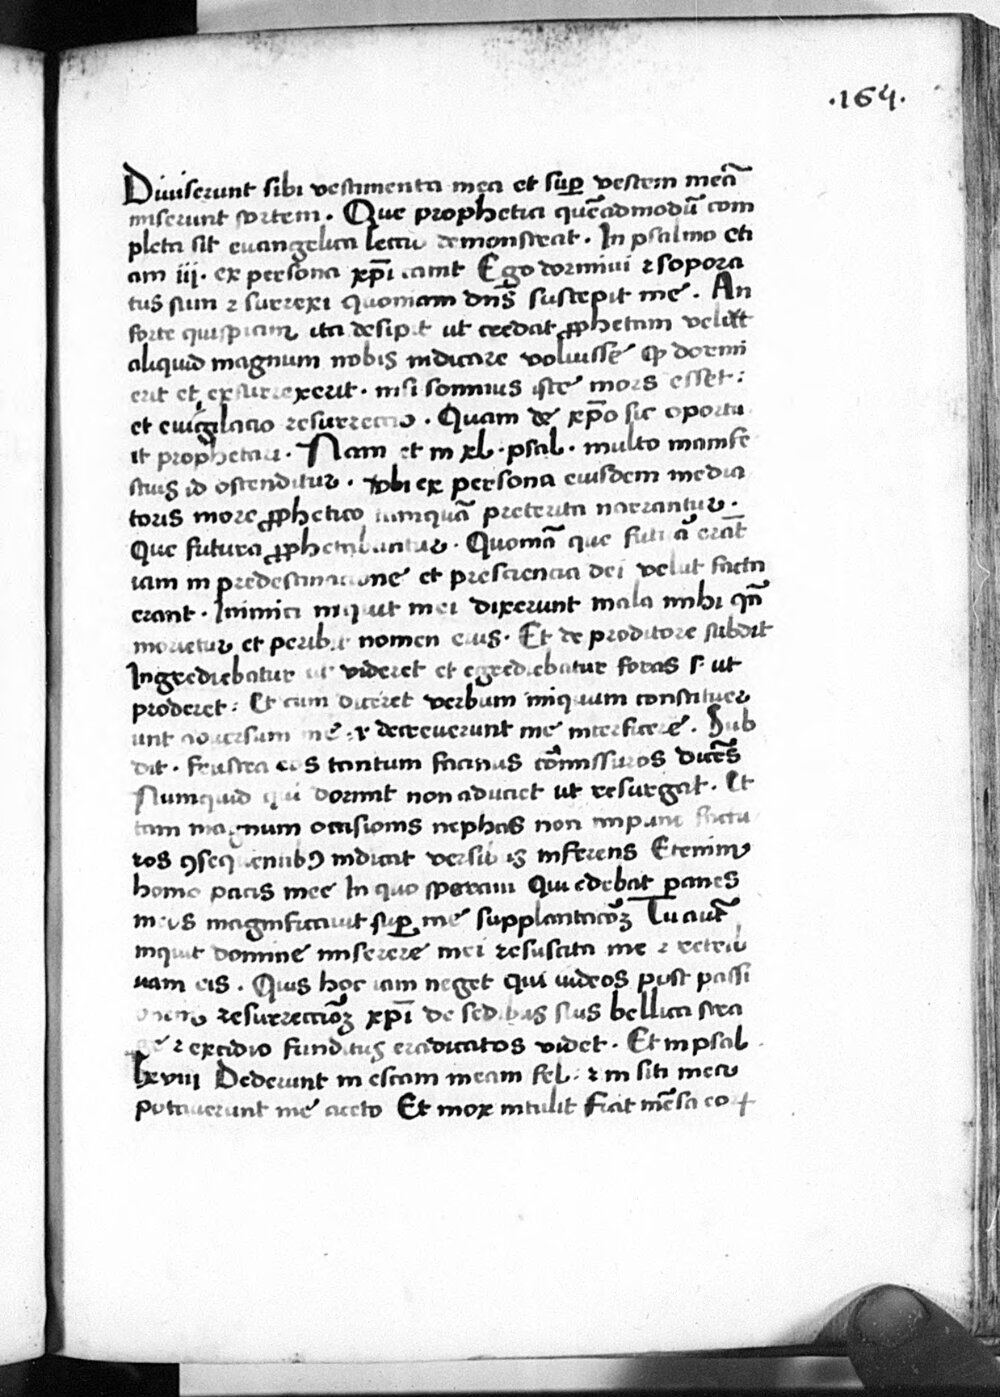 .164.
Diuiserunt sibi vestimenta mea et sup̲ vestem meā
miserunt sortem. Que prophetia quēadmodū com
pleta sit euangelica lectio demonstrat. In psalmo eti
am iij. ex persona xp̄i canit Ego dormiui ⁊ sopora
tus sum ⁊ surrexi quoniam dn̄s suscepit me. An
forte quispiam ita desipit ut credat ꝓphetam velut
aliquid magnum nobis indicare voluisse ꝙ dormi
erit et exsurrexerit. nisi somnus iste mors esset:
et euigilacio resurrectio. Quam de xp̄o sic oportu
it prophetari. Nam et in xl. psal. multo manife
stius id ostenditur. vbi ex persona eiusdem media
toris more ꝓphetico tamquā preterita narrantur.
Que futura ꝓphetabantur. Quoniā que futura erāt
iam in predestinacione et presciencia dei velut facta
erant. Inimici inquit mei dixerunt mala mihi qn̄
morietur et peribit nomen eius. Et de proditore subdit
Ingrediebatur ut videret et egrediebatur foras s. ut
proderet: Et cum diceret verbum iniquum constituer
unt aduersum me. ⁊ decreuerunt me interficere. Sub
dit. frustra eos tantum facinus cōmissuros dicēs
Numquid qui dormit non adiciet ut resurgat. Et
tam magnum occisionis nephas non impune factu
ros ꝯsequentibꝰ indicat versibꝫ inferens Etenim
homo pacis mee In quo speraui Qui edebat panes
meos magnificauit sup̲ me supplantacōꝫ Tu autē
inquit domine miserere mei resuscita me ⁊ retrib
uam eis. Quis hoc iam neget qui iudeos post passi
onem resurrectiōꝫ xp̄i de sedibus suis bellica stra
ge ⁊ excidio funditus eradicatos videt. Et in psal.
lxviii Dederunt in escam meam fel: ⁊ in siti mea
potauerunt me aceto Et mox intulit Fiat mēsa eor